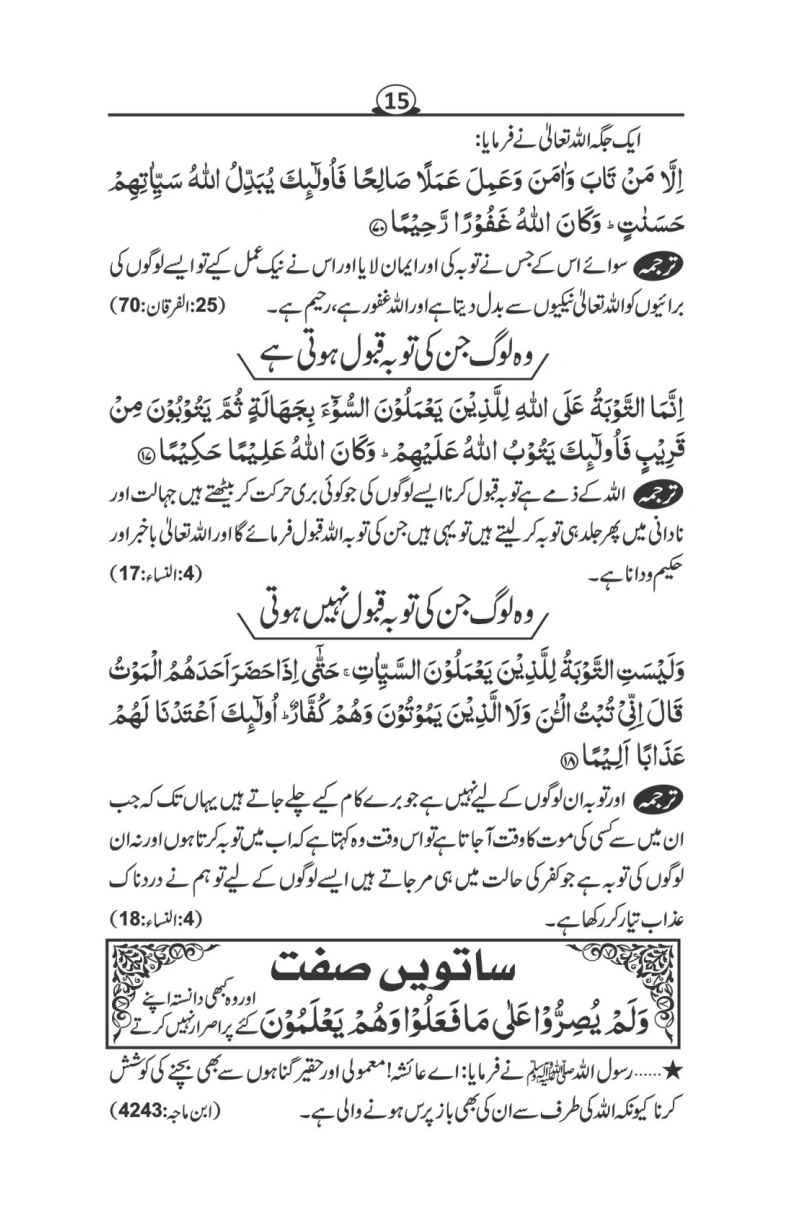 15
ایک جگہ اللہ تعالیٰ نے فرمایا:
اِلَّا مَنْ تَابَ وَاٰمَنَ وَعَمِلَ عَمَلًا صَالِحًا فَاُولٰٓئِكَ يُبَدِّلُ اللهُ سَيِّاٰتِهِمْ
حَسَنٰتٍ ؕ وَكَانَ اللهُ غَفُوْرًا رَّحِيْمًا ﴿۷۰﴾
ترجمہ سوائے اس کے جس نے توبہ کی اور ایمان لایا اور اس نے نیک عمل کیے تو ایسے لوگوں کی
برائیوں کو اللہ تعالیٰ نیکیوں سے بدل دیتا ہے اور اللہ غفور ہے، رحیم ہے۔ (25:الفرقان:70)
وہ لوگ جن کی توبہ قبول ہوتی ہے
اِنَّمَا التَّوْبَةُ عَلَى اللهِ لِلَّذِيْنَ يَعْمَلُوْنَ السُّوْٓءَ بِجَهَالَةٍ ثُمَّ يَتُوْبُوْنَ مِنْ
قَرِيْبٍ فَاُولٰٓئِكَ يَتُوْبُ اللهُ عَلَيْهِمْ ؕ وَكَانَ اللهُ عَلِيْمًا حَكِيْمًا ﴿۱۷﴾
ترجمہ اللہ کے ذمے ہے توبہ قبول کرنا ایسے لوگوں کی جو کوئی بری حرکت کر بیٹھتے ہیں جہالت اور
نادانی میں پھر جلد ہی توبہ کر لیتے ہیں تو یہی ہیں جن کی توبہ اللہ قبول فرمائے گا اور اللہ تعالیٰ باخبر اور
حکیم و دانا ہے۔ (4:النساء:17)
وہ لوگ جن کی توبہ قبول نہیں ہوتی
وَلَيْسَتِ التَّوْبَةُ لِلَّذِيْنَ يَعْمَلُوْنَ السَّيِّاٰتِ ۚ حَتّٰٓى اِذَا حَضَرَ اَحَدَهُمُ الْمَوْتُ
قَالَ اِنِّىْ تُبْتُ الْـٰٔنَ وَلَا الَّذِيْنَ يَمُوْتُوْنَ وَهُمْ كُفَّارٌ ؕ اُولٰٓئِكَ اَعْتَدْنَا لَهُمْ
عَذَابًا اَلِيْمًا ﴿۱۸﴾
ترجمہ اور توبہ ان لوگوں کے لیے نہیں ہے جو برے کام کیے چلے جاتے ہیں یہاں تک کہ جب
ان میں سے کسی کی موت کا وقت آ جاتا ہے تو اس وقت وہ کہتا ہے کہ اب میں توبہ کرتا ہوں اور نہ ان
لوگوں کی توبہ ہے جو کفر کی حالت میں ہی مر جاتے ہیں ایسے لوگوں کے لیے تو ہم نے دردناک
عذاب تیار کر رکھا ہے۔ (4:النساء:18)
ساتویں صفت
وَلَمْ يُصِرُّوْا عَلٰى مَا فَعَلُوْا وَهُمْ يَعْلَمُوْنَ اور وہ کبھی دانستہ اپنے
کئے پر اصرار نہیں کرتے
★......رسول اللہ ﷺ نے فرمایا: اے عائشہ! معمولی اور حقیر گناہوں سے بھی بچنے کی کوشش
کرنا کیونکہ اللہ کی طرف سے ان کی بھی باز پرس ہونے والی ہے۔ (ابن ماجہ:4243)